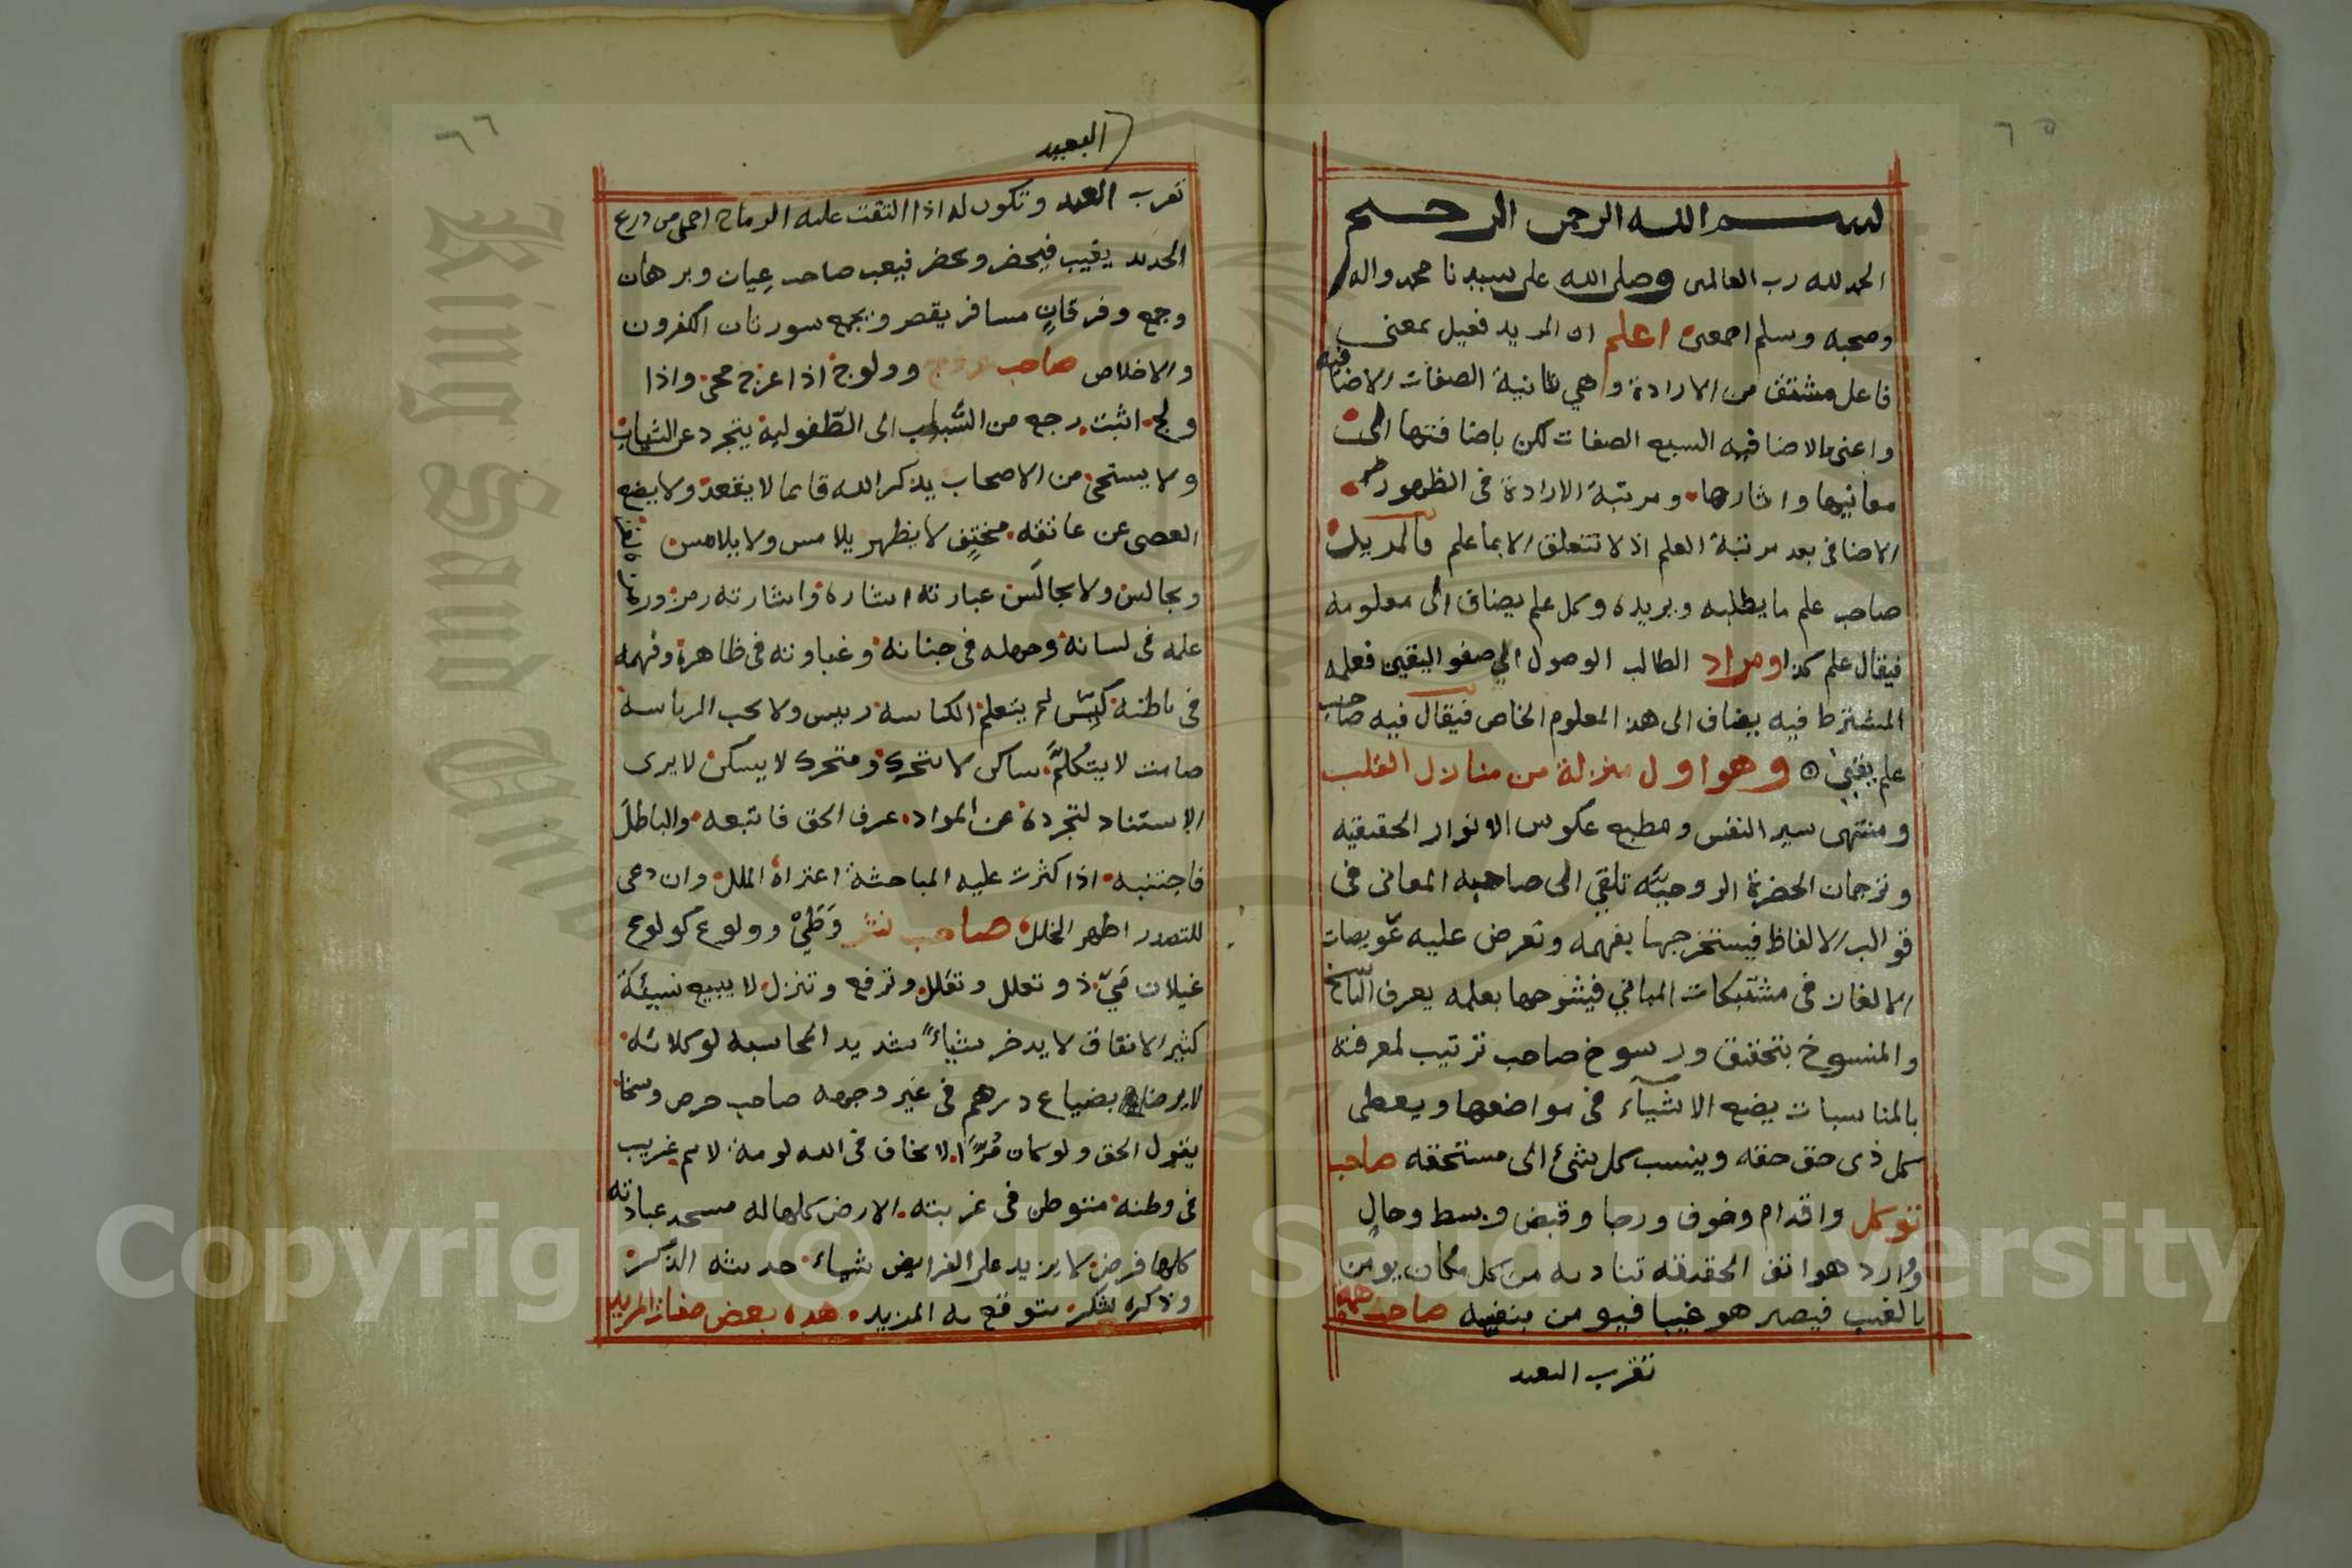 ٦٥
بسم الله الرحمن الرحيم
الحمد لله رب العالمين وصلى الله على سيدنا محمد واله
وصحبه وسلم اجمعين اعلم ان المريد فعيل بمعنى
فاعل مشتق من الارادة وهي ثانية الصفات الاضافيه
واعنى بالاضافيه السبع الصفات لكن باضافتها الى
معانيها واثارها ومرتبة الارادة فى الظهور
الاضافى بعد مرتبة العلم اذ لا تتعلق الا بما علم فالمريد
صاحب علم ما يطلبه ويريده وكل علم يضاف الى معلومه
فيقال علم كذا ومراد الطالب الوصول الى صفو اليقين فعلمه
المشترط فيه يضاف الى هذ المعلوم الخاص فيقال فيه صاحب
علم يقين وهو اول منزلة من منازل القلب
ومنتهى سير النفس ومطبع عكوس الانوار الحقيقيه
وترجمان الحضرة الروحيّه تلقي الى صاحبه المعانى فى
قوالب الالفاظ فيستخرجها بفهمه وتعرض عليه عويصات
الالغاز فى مشتبكات المباني فيشرحها بعلمه يعرف النّاسخ
والمنسوخ بتحقيق ورسوخ صاحب ترتيب لمعرفته
بالمناسبات يضع الاشيآء فى مواضعها ويعطى
كل ذى حق حقه وينسب كل شئ الى مستحقه صاحب
توكل واقدام وخوف ورجا وقبض وبسط وحالٍ
ووارد هواتف الحقيقه تناديه من كل مكان يومن
بالغيب فيصير هو غيبا فيومن بنفسه صاحب همة
تقرب البعيد
٦٦
البعيد
تقرب العبد وتكون له اذا التقت عليه الرماح احمى من درع
الحديد يغيب فيحضر ويحضر فيغيب صاحب عِيان وبرهان
وجمع وفرقانٍ مسافر يقصر ويجمع سورتان الكفرون
والاخلاص صاحب عروج وولوج اذا عرج محى واذا
ولج اثبت رجع من الشّباب الى الطّفوليه يتجرد عن الثياب
ولا يستحى من الاصحاب يذكر الله قايما لا يقعد ولا يضع
العصى عن عاتقه مختفٍ لا يظهر يلامس ولا يلامس
ويجالس ولا يجالَس عبارته اشاره واشارته رمز ورمزه
علمه فى لسانه وجهله فى جنانه وغباوته فى ظاهره وفهمه
فى باطنه كيّس لم يتعلم الكياسه رييس ولا يحب الرياسه
صامت لا يتكلّم ساكن لا يتحرك ومتحرك لا يسكن لا يرى
الاستناد لتجرده عن المواد عرف الحق فاتبعه والباطل
فاجتنبه اذا كثرت عليه المباحثة اعتراه الملل وان دعى
للتصدر اظهر الخلل صاحب نشر وَطَيٍّ وولوع كولوع
غيلان مَيّ ذو تعلل وتقلل وترفع وتنزل لا يبيع نسيئة
كثير الانفاق لا يدخر شياءً شديد المحاسبه لوكلائه
لا يرضا بضياع درهم فى غير وجهه صاحب حرص وسخا
يقول الحق ولو كان مُرًّا لا يخاف فى الله لومة لايم غريب
فى وطنه متوطن فى غربته الارض كلها له مسجد عباداته
كلها فرض لا يزيد على الفرايض شياء حديثه الذكر
وذكره شكر يتوقع به المزيد هذه بعض صفات المريد
King Saud University
1957
Copyright © King Saud University